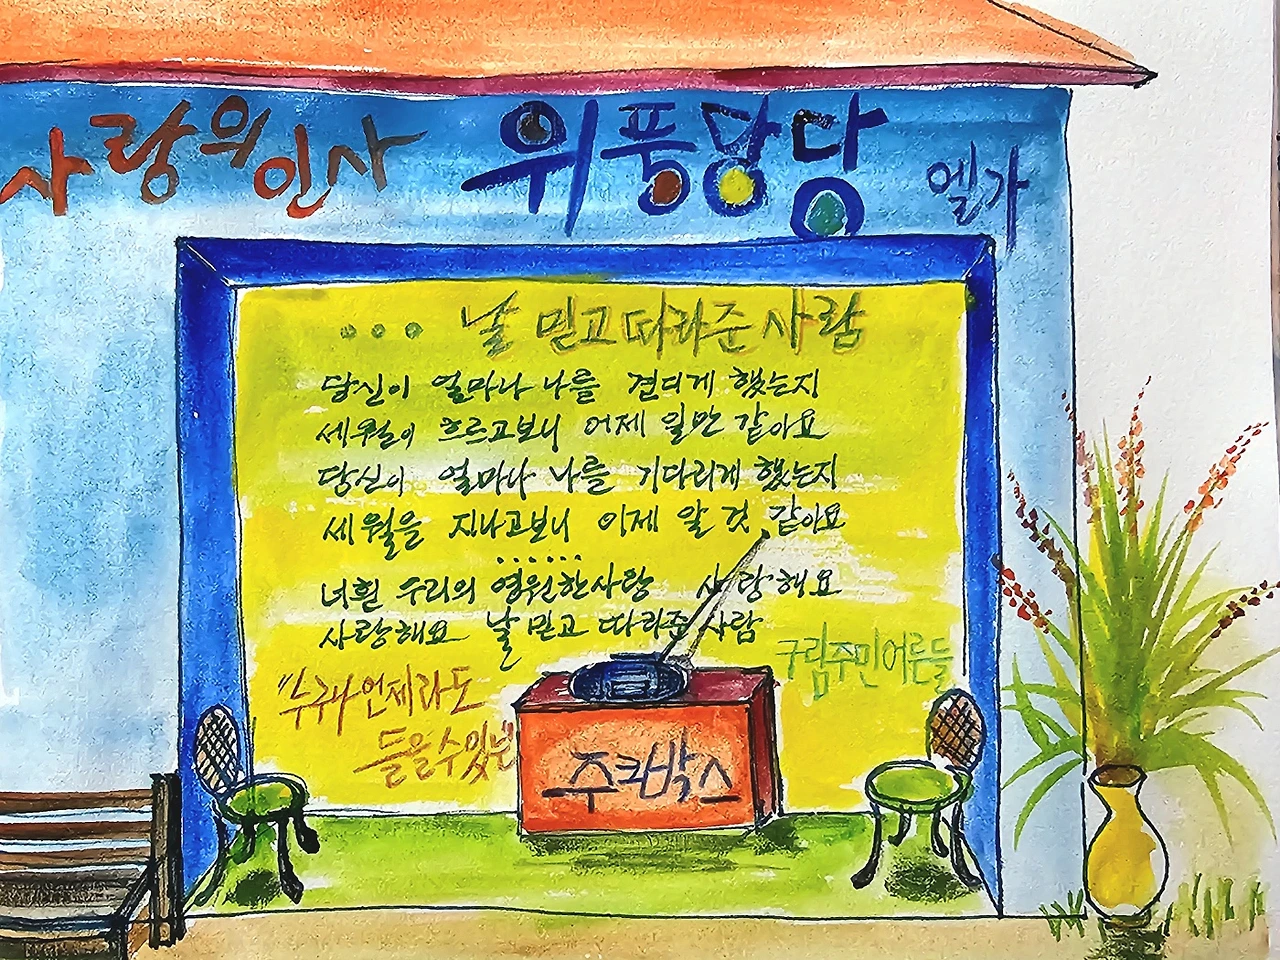 사랑의 인사 위풍당당 엘가
... 날 믿고 따라준 사람
당신이 얼마나 나를 견디게 했는지
세월이 흐르고보니 어제 일만 같아요
당신이 얼마나 나를 기다리게 했는지
세월을 지나고보니 이제 알 것 같아요
......
너흰 우리의 영원한사랑 사랑해요
사랑해요 날 믿고 따라준 사람
구림주민어른들
"누구나 언제라도
들을 수 있는
주크박스